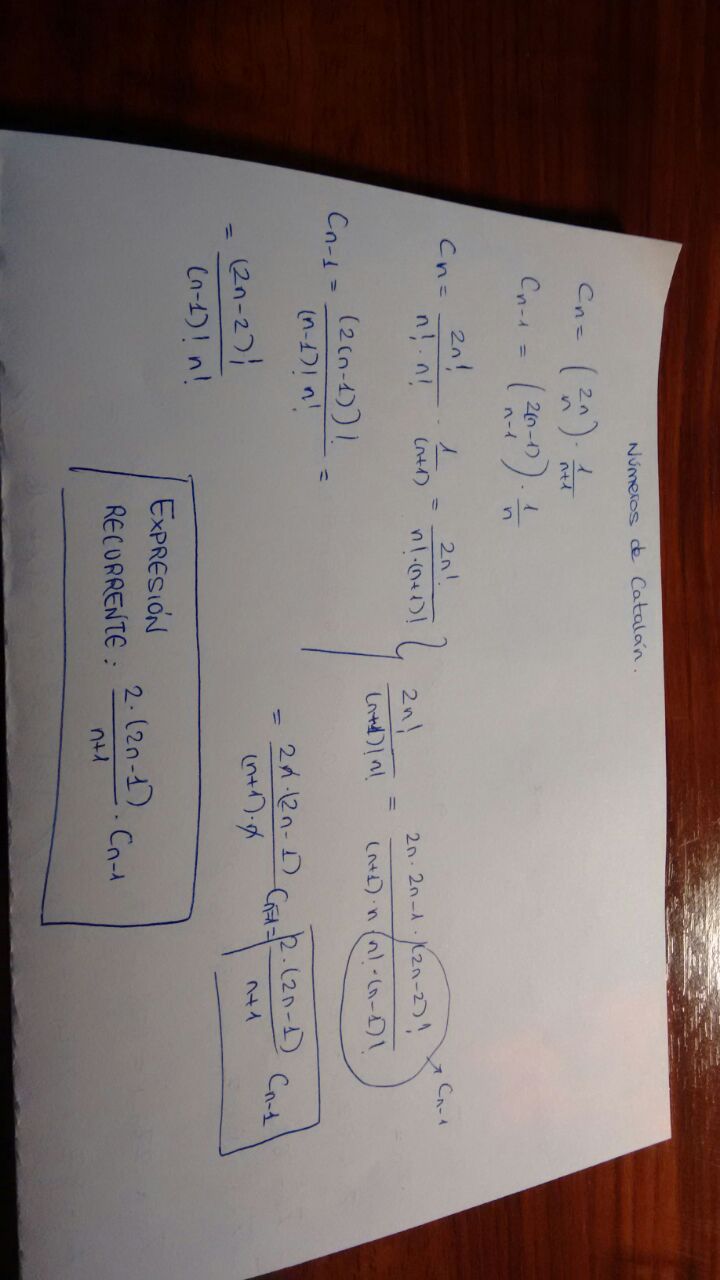 Números de Catalán.
Cn = (2n n) · 1/n+1
Cn-1 = (2(n-1) n-1) · 1/n
Cn = 2n!/n!·n! · 1/(n+1) = 2n!/n!·(n+1)!
Cn-1 = (2(n-1))!/(n-1)! n! =
= (2n-2)!/(n-1)! n!
2n!/(n+1)! n! = 2n · 2n-1 · (2n-2)!/(n+1) · n · n! · (n-1)! → Cn-1
= 2n·(2n-1)/(n+1)·n Cn-1 = 2·(2n-1)/n+1 Cn-1
EXPRESIÓN
RECURRENTE: 2·(2n-1)/n+1 · Cn-1